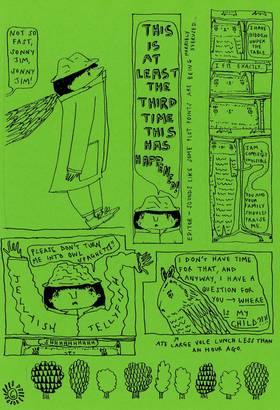 NOT SO
FAST,
SONNY
JIM,
SONNY
JIM!
THIS
IS
AT
LEAST
THE
THIRD
TIME
THIS
HAS
HAPPENED!
EDITOR – SOUNDS LIKE SOME PLOT POINTS ARE BEING MARKEDLY
OVERUSED...
I HAVE
HIDDEN
UNDER
THE
TABLE.
I FIT EXACTLY.
I AM
COMPLETELY
INVISIBLE.
YOU AND
YOUR
FAMILY
SHOULD
PRAISE
ME.
PLEASE DON'T TURN
ME INTO OWL
SPAGHETTI!
I DON'T HAVE TIME
FOR THAT, AND
ANYWAY, I HAVE A
QUESTION FOR
YOU → WHERE
IS MY
CHILD?!!
ATE LARGE VOLE LUNCH LESS THAN
AN HOUR AGO.